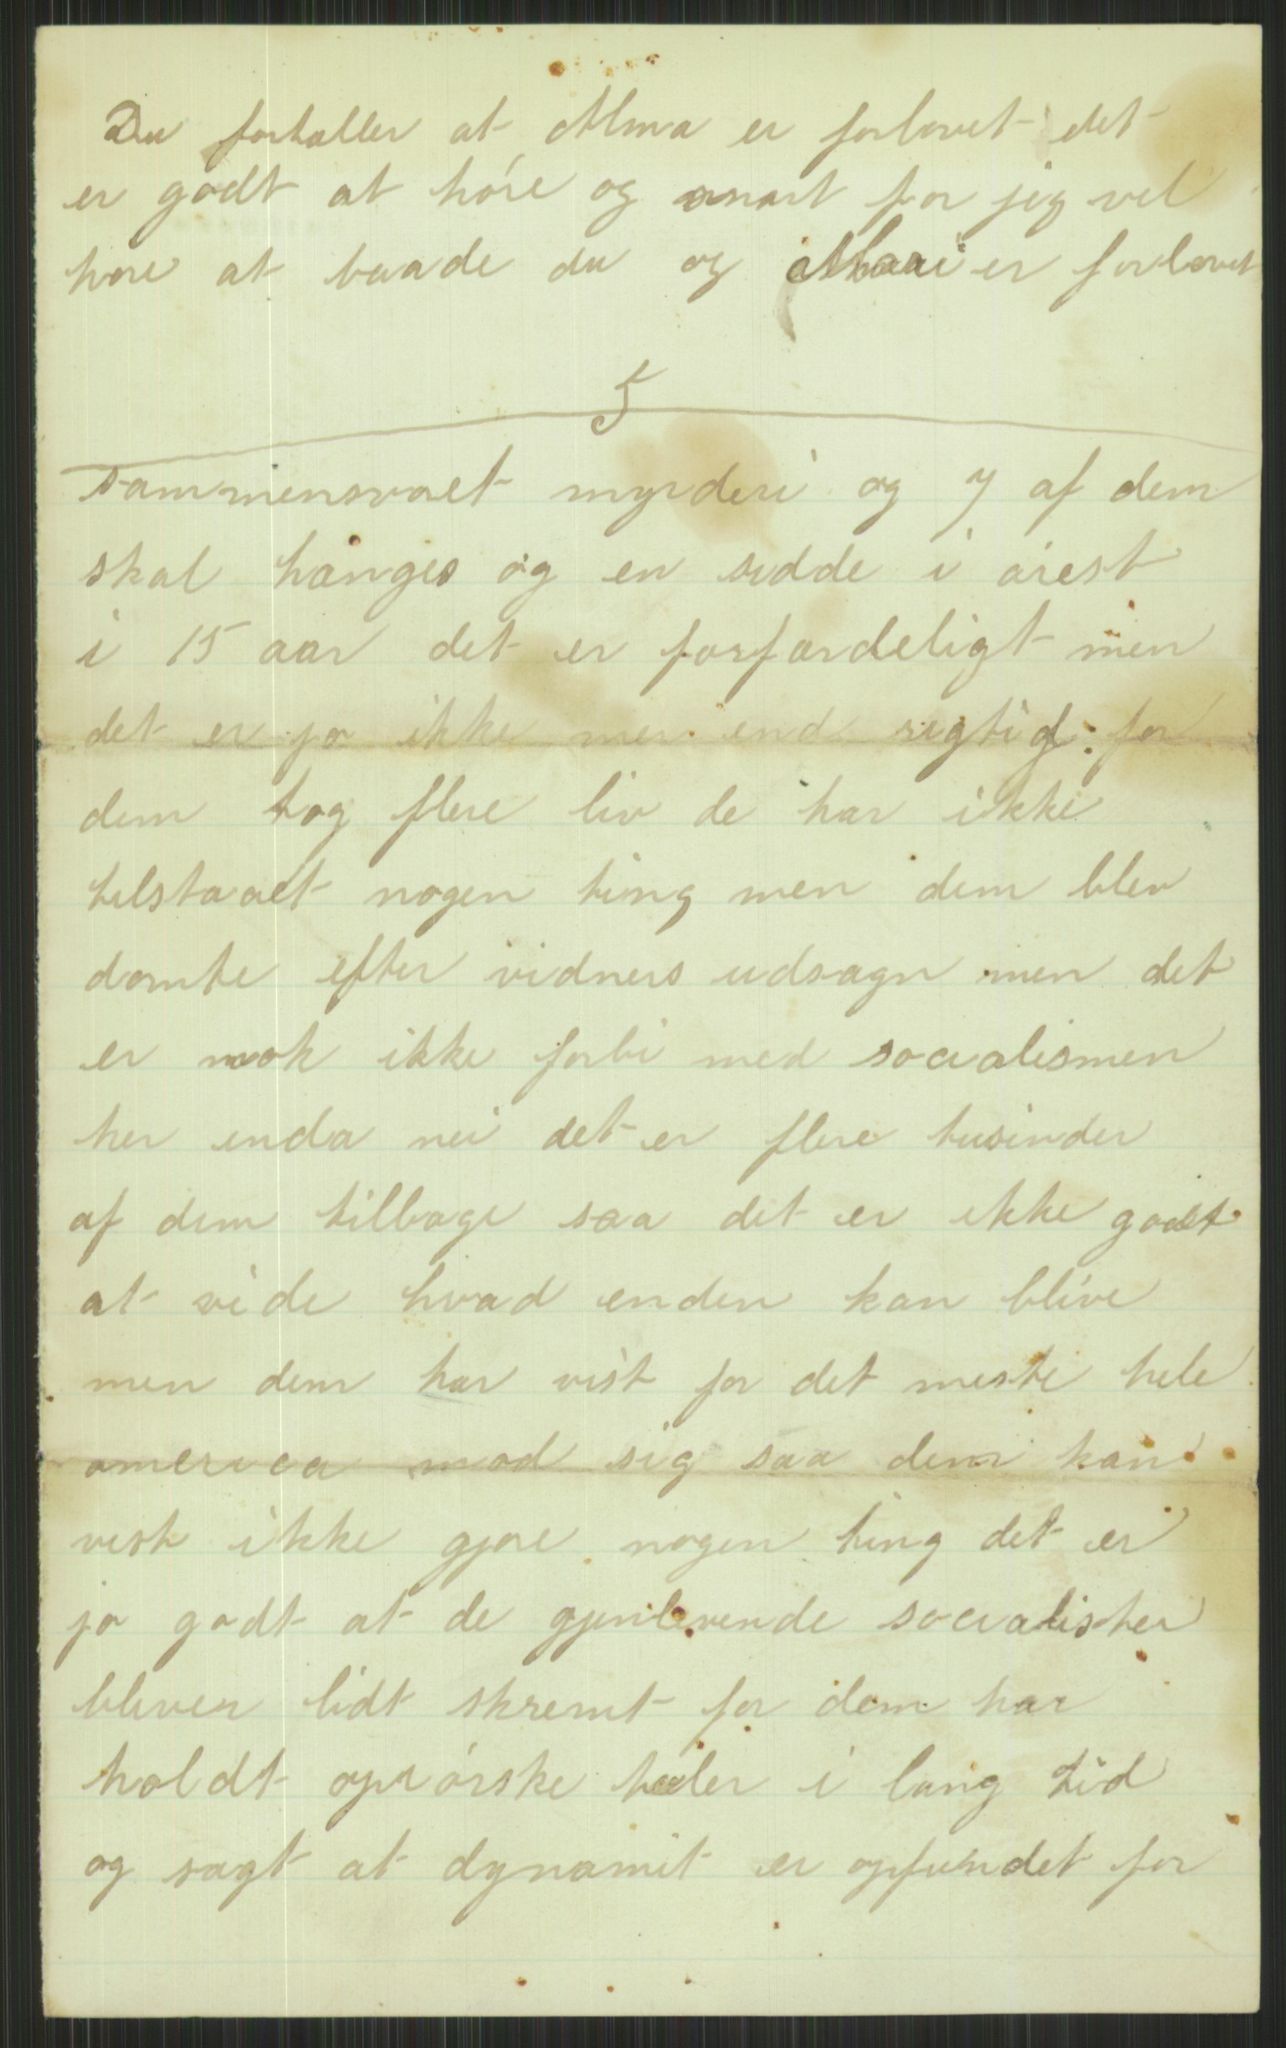 Du fortæller at Alma er forlovet det
er godt at høre og snart for jeg vel
høre at baade du og er forlovet
5
sammensvoet myrderi og 7 af dem
skal hänges og en sidde i årest
i 15 aar det er forfærdeligt men
det er jo ikke mer end rigtig for
dem tog flere liv de har ikke
tilstaaet nogen ting men dem blev
domte efter vidners udsagn men det
er nok ikke forbi med socialismen
her enda nei det er flere tusinder
af dem tilbage saa det er ikke godt
at vide hvad enden kan blive
men dem har vist for det meste hele
america mod sig saa dem kan
vist ikke gjøre nogen ting det er
jo godt at de gjenlevende socialister
bliver lidt skremt for dem har
holdt oprórske taler i lang tid
og sagt at dynamit er opfundet for